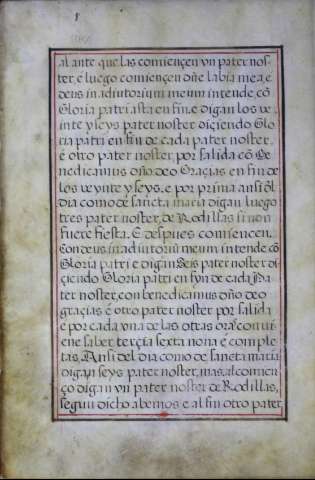 al ante que las comiençen vn pater nos-
ter, e luego comiençen dñe labia mea, e
deus in adiutorium meum intende, cõ
Gloria patri asta en fin, e digan los ve
inte y seys pater noster diçiendo Glo
ria patri en fin de cada pater noster,
é otro pater noster, por salida cõ Be
nedicamus dño deo Graçias en fin de
los veynte y seys, e por prima ansi õl
dia como de sancta maria digan luego
tres pater noster, de Rodillas si non
fuere fiesta. E despues comiencen.
Con deus in adiutoriũ meum intende cõ
Gloria patri e digan Seis pater noster di
çiendo Gloria patri en fyn de cada Pa
ter noster, con benedicamus dño deo
graçias é otro pater noster por salida
e por cada vna de las otras oras conui
ene saber, terçia sexta nona é comple
tas, Ansi del dia como de sancta maria
digan seys pater noster, mas, al comien
ço digan vn pater noster de Rodillas,
segun dicho abemos e al fin otro pater